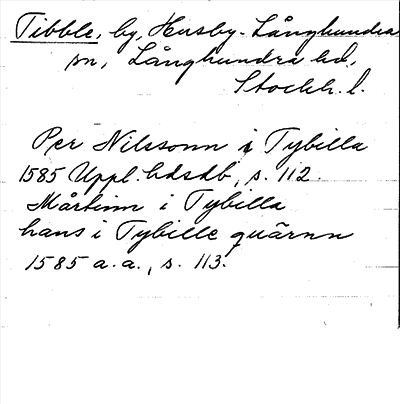 Tibble, by, Husby-Långhundra
sn, Långhundra hd,
Stockh. l.
Per Nilssonn i Tybilla
1585 Uppl. hdsdb, s. 112.
Mårtinn i Tybilla
hans i Tybille quärnn
1585 a. a., s. 113.